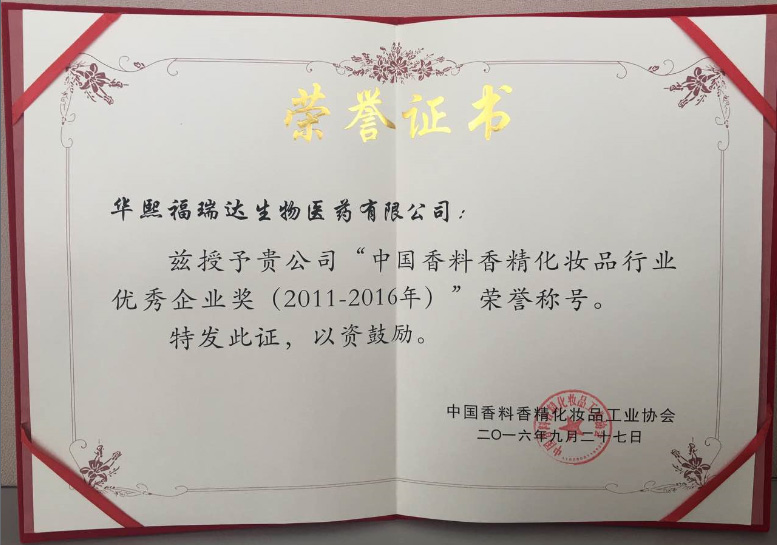 荣誉证书
华熙福瑞达生物医药有限公司：
兹授予贵公司“中国香料香精化妆品行业
优秀企业奖（2011-2016年）”荣誉称号。
特发此证，以资鼓励。
中国香料香精化妆品工业协会
二〇一六年九月二十七日